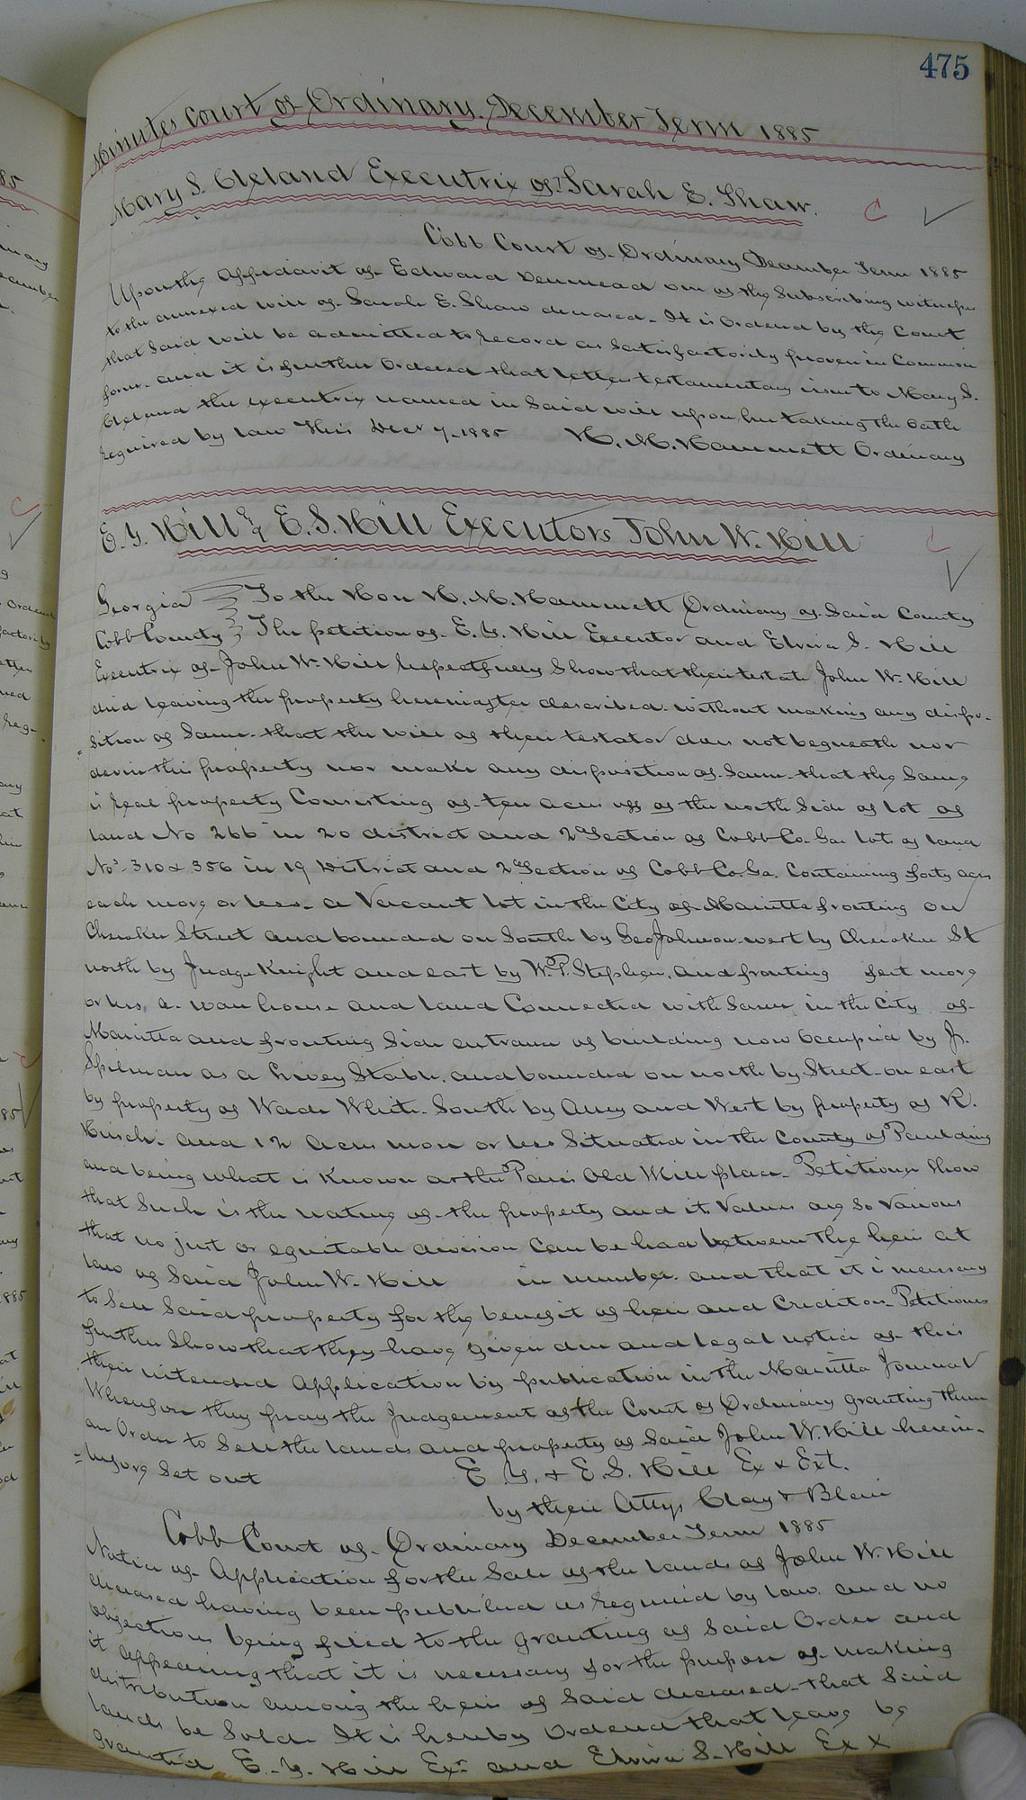 475
Minutes Court of Ordinary. December Term 1885
Mary S. Cleland Executrix of Sarah E. Shaw.
Cobb Court of Ordinary December Term 1885
Upon the affidavit of Edward Denmead one of the Subscribing witnesses
to the annexed will of Sarah E. Shaw deceased. It is Ordered by the Court
that Said will be admitted to record as Satisfactorily proven in Common
form. and it is further Ordered that letters testamentary issue to Mary S.
Cleland the executrix named in Said will upon her taking the oath
required by law This Decr 7. 1885 H. M. Hammett Ordinary
E. G. Hill & E. S. Hill Executors John W. Hill
Georgia To the Hon H. M. Hammett Ordinary of Said County
Cobb County The petition of E. G. Hill Executor and Elvira S. Hill
Executrix of John W. Hill Respectfully Show that their testate John W. Hill
died leaving the property hereinafter described without making any dispo-
sition of Same. that the will of their testator does not bequeath nor
devise this property nor make any disposition of Same. that the Same
is real property Consisting of ten acres off of the north Side of lot of
land No 266 in 20 district and 2d Section of Cobb Co. Ga. lots of land
Nos. 310 & 356 in 19 District and 2d Section of Cobb Co. Ga. Containing forty acres
each more or less. a Vacant lot in the City of Marietta fronting on
Cherokee Street and bounded on South by Geo Johnson west by Cherokee St
north by Judge Knight and east by W. P. Stephens. and fronting feet more
or less, a. ware house and land Connected with Same in the City of
Marietta and fronting Side entrance of building now Occupied by J.
Spilman as a Livey Stable. and bounded on north by Street on east
by property of Wade White. South by Alley and West by property of R.
Hirsch. and 12 acres more or less Situated in the County of Paulding
and being what is Known as the Paris Old Mill place. Petitioners Show
that Such is the nature of the property and its Values are so Various
that no just or equitable division Can be had between the heirs at
law of Said John W. Hill in number. and that it is necessary
to Sell Said property for the benefit of heirs and Creditors. Petitioners
further Show that they have given due and legal notice of this
their intended application by publication in the Marietta Journal
Wherefore they pray the Judgement of the Court of Ordinary granting them
an Order to Sell the lands and property of Said John W. Hill herein-
=before Set out E G. & E. S. Hill Ex & Ext.
by their Attys Clay & Blair
Cobb Court of Ordinary December Term 1885
Notice of Application for the Sale of the lands of John W. Hill
deceased having been published as required by law. and no
objections being filed to the granting of Said Order and
it appearing that it is necessary for the purpose of making
distribution among the heirs of Said deceased. that Said
lands be Sold. It is hereby Ordered that leave be
granted E. G. Hill Exr. and Elvira S. Hill Ex x